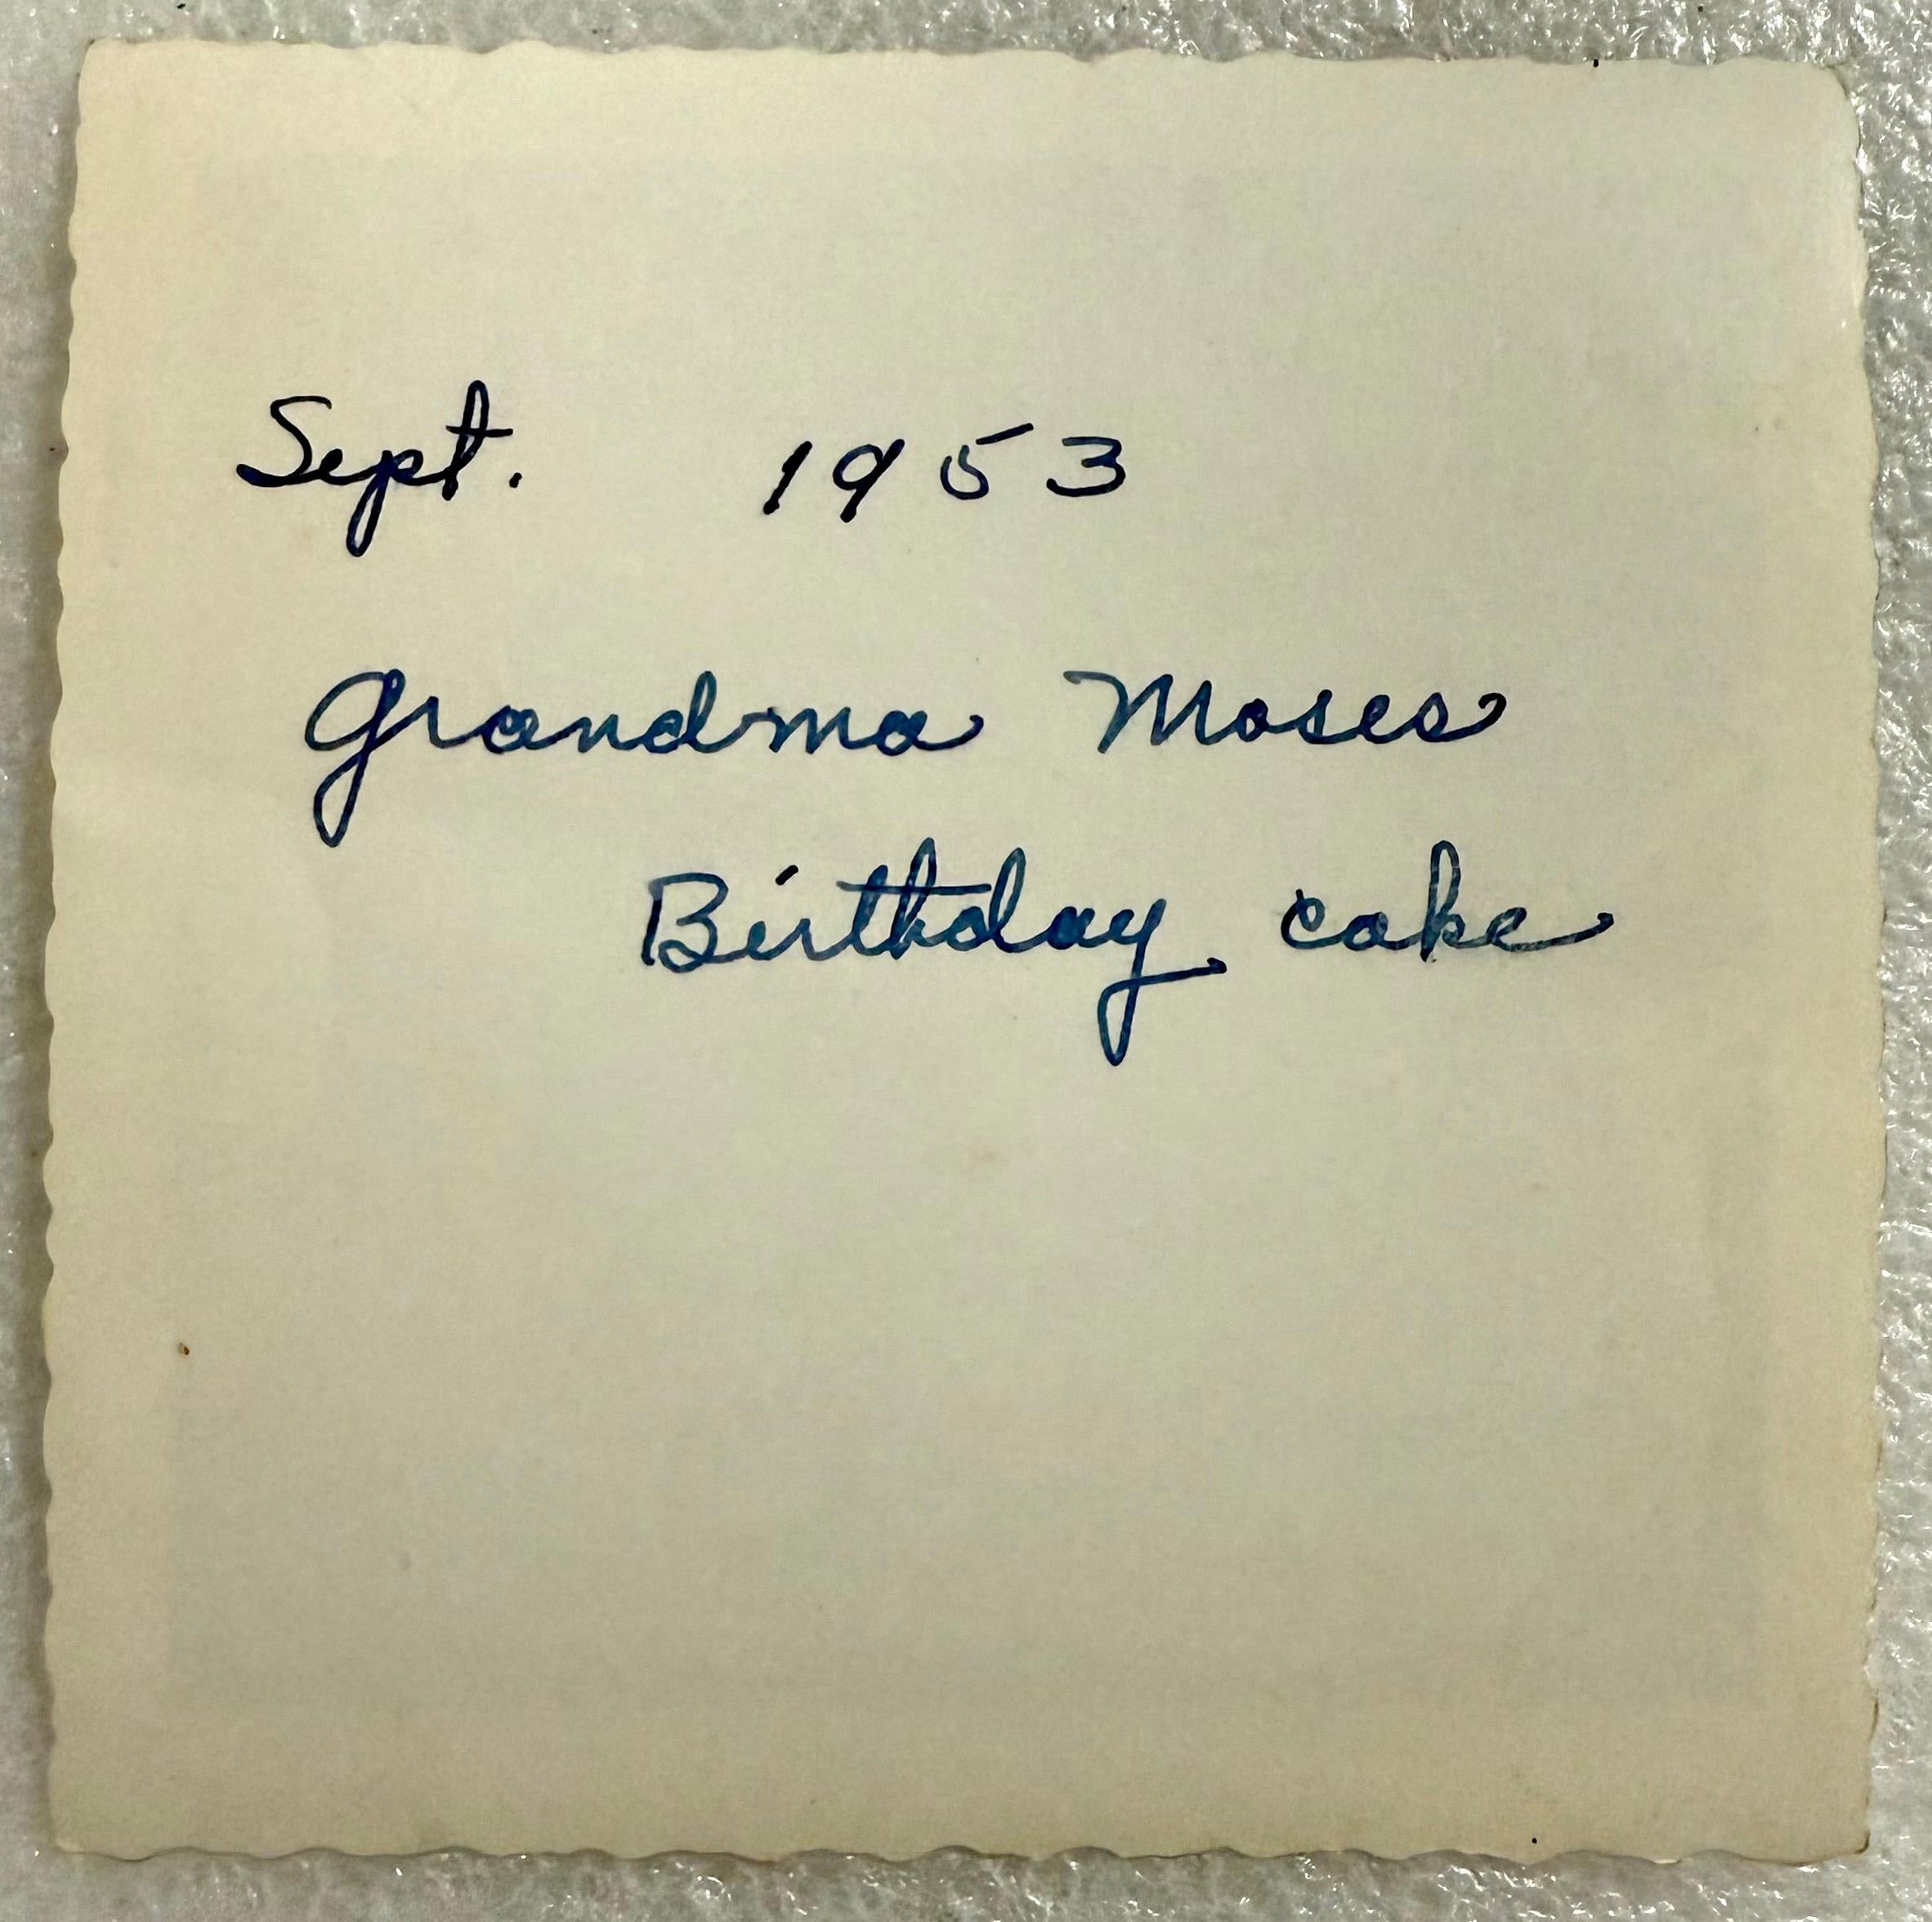 Sept. 1953
Grandma Moses
Birthday cake